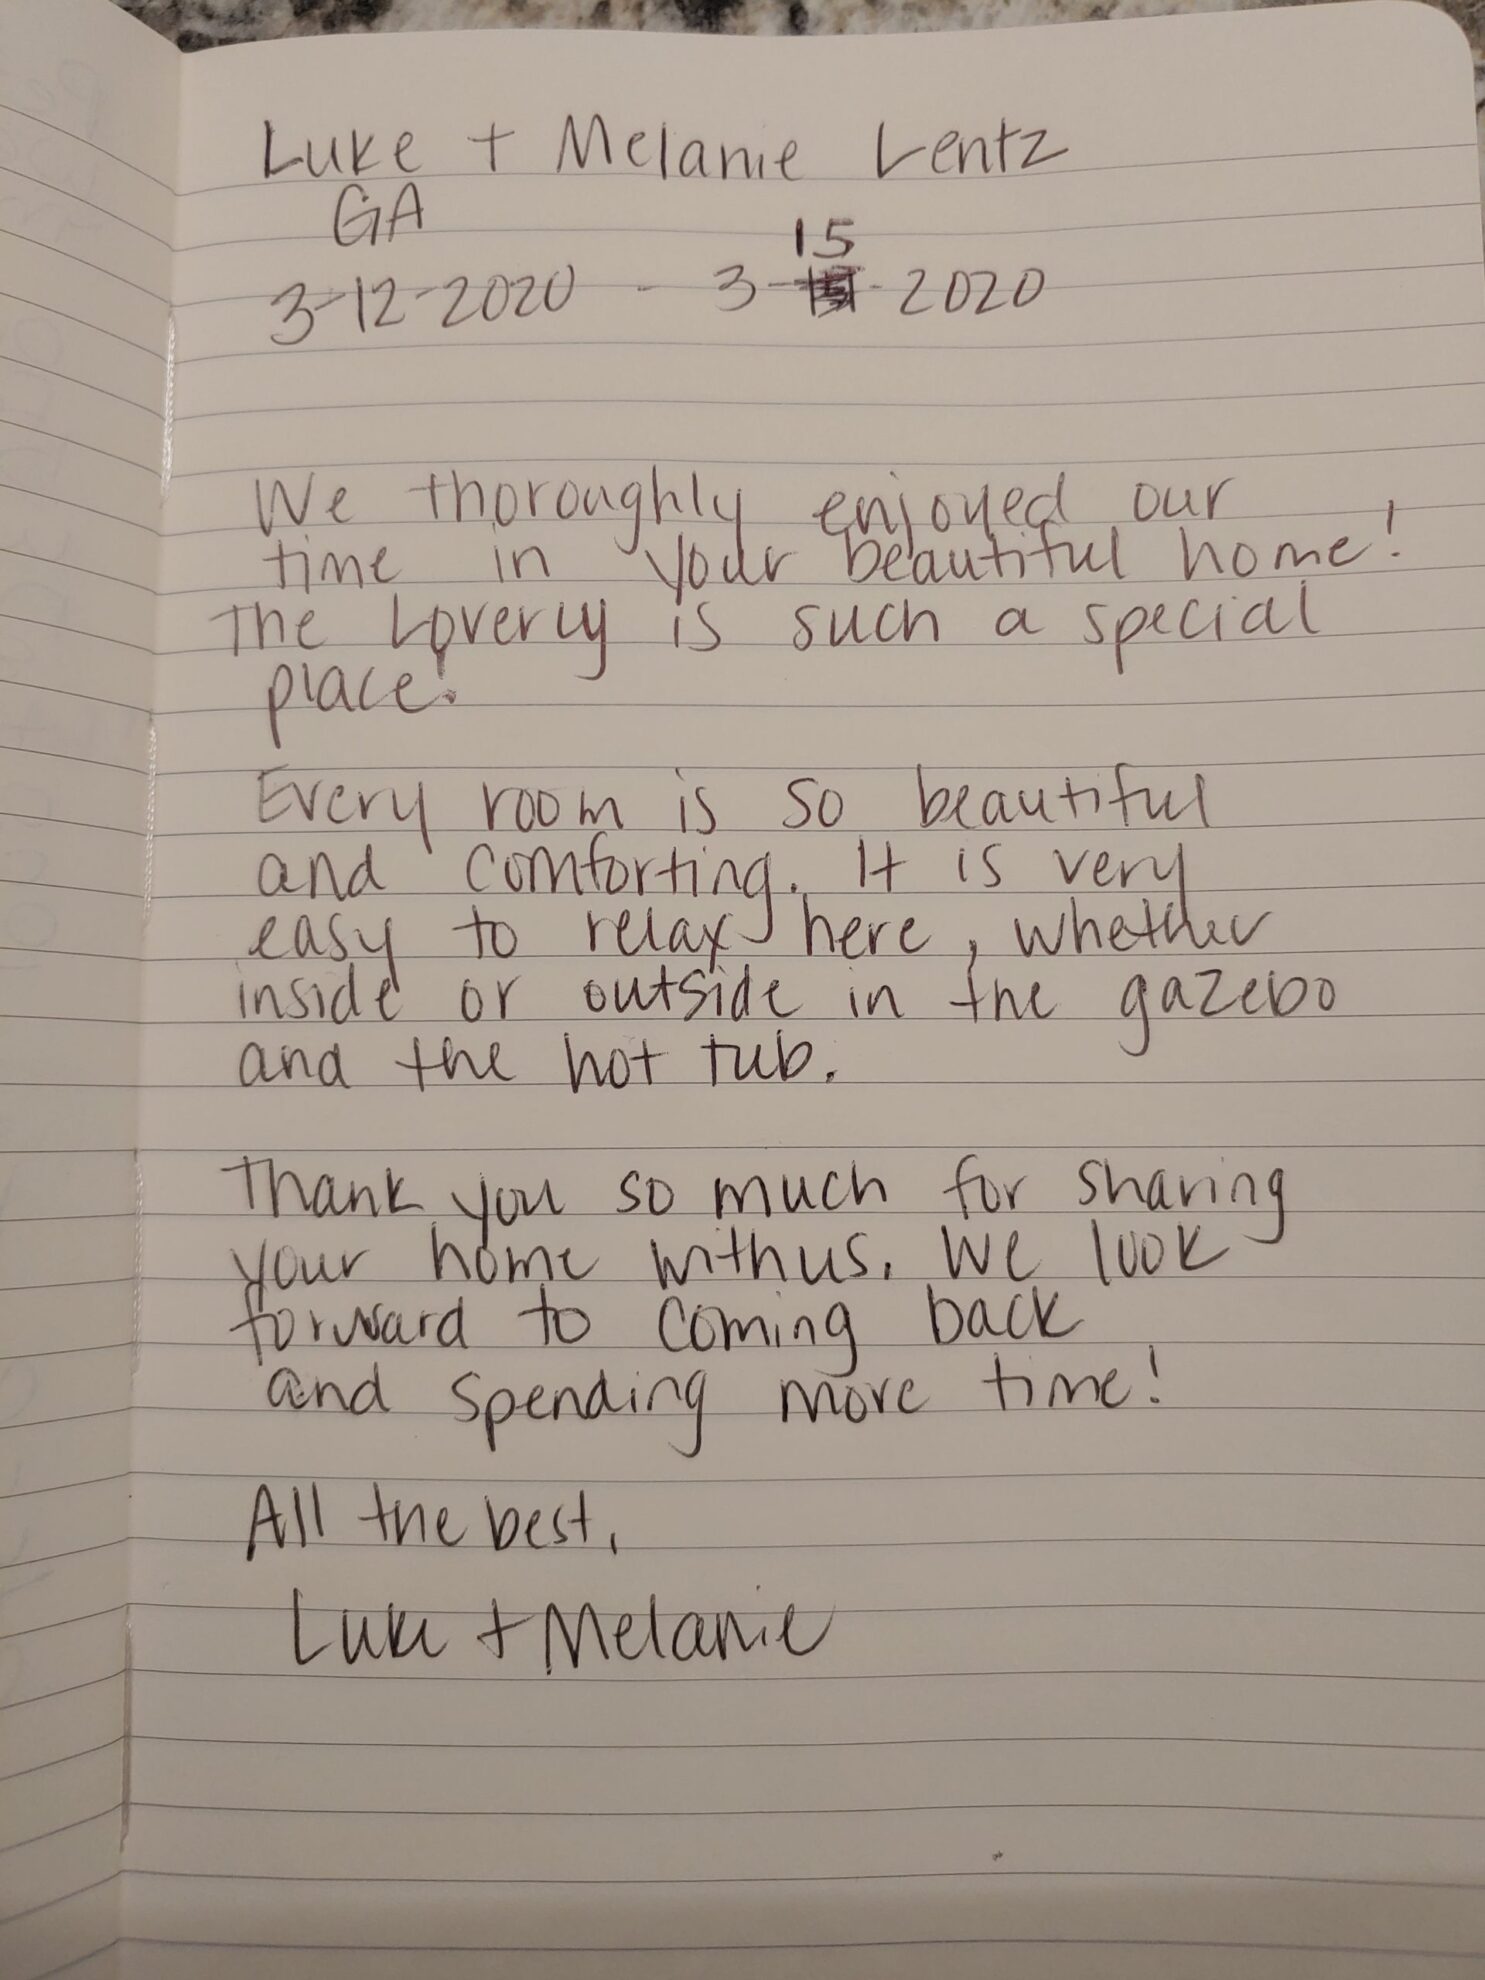 Luke + Melanie Lentz
GA
15
3-12-2020 - 3- - 2020
We thoroughly enjoyed our
time in your beautiful home!
The Loverly is such a special
place!
Every room is so beautiful
and comforting. It is very
easy to relax here, whether
inside or outside in the gazebo
and the hot tub.
Thank you so much for sharing
your home with us. We look
forward to coming back
and spending more time!
All the best,
Luke + Melanie